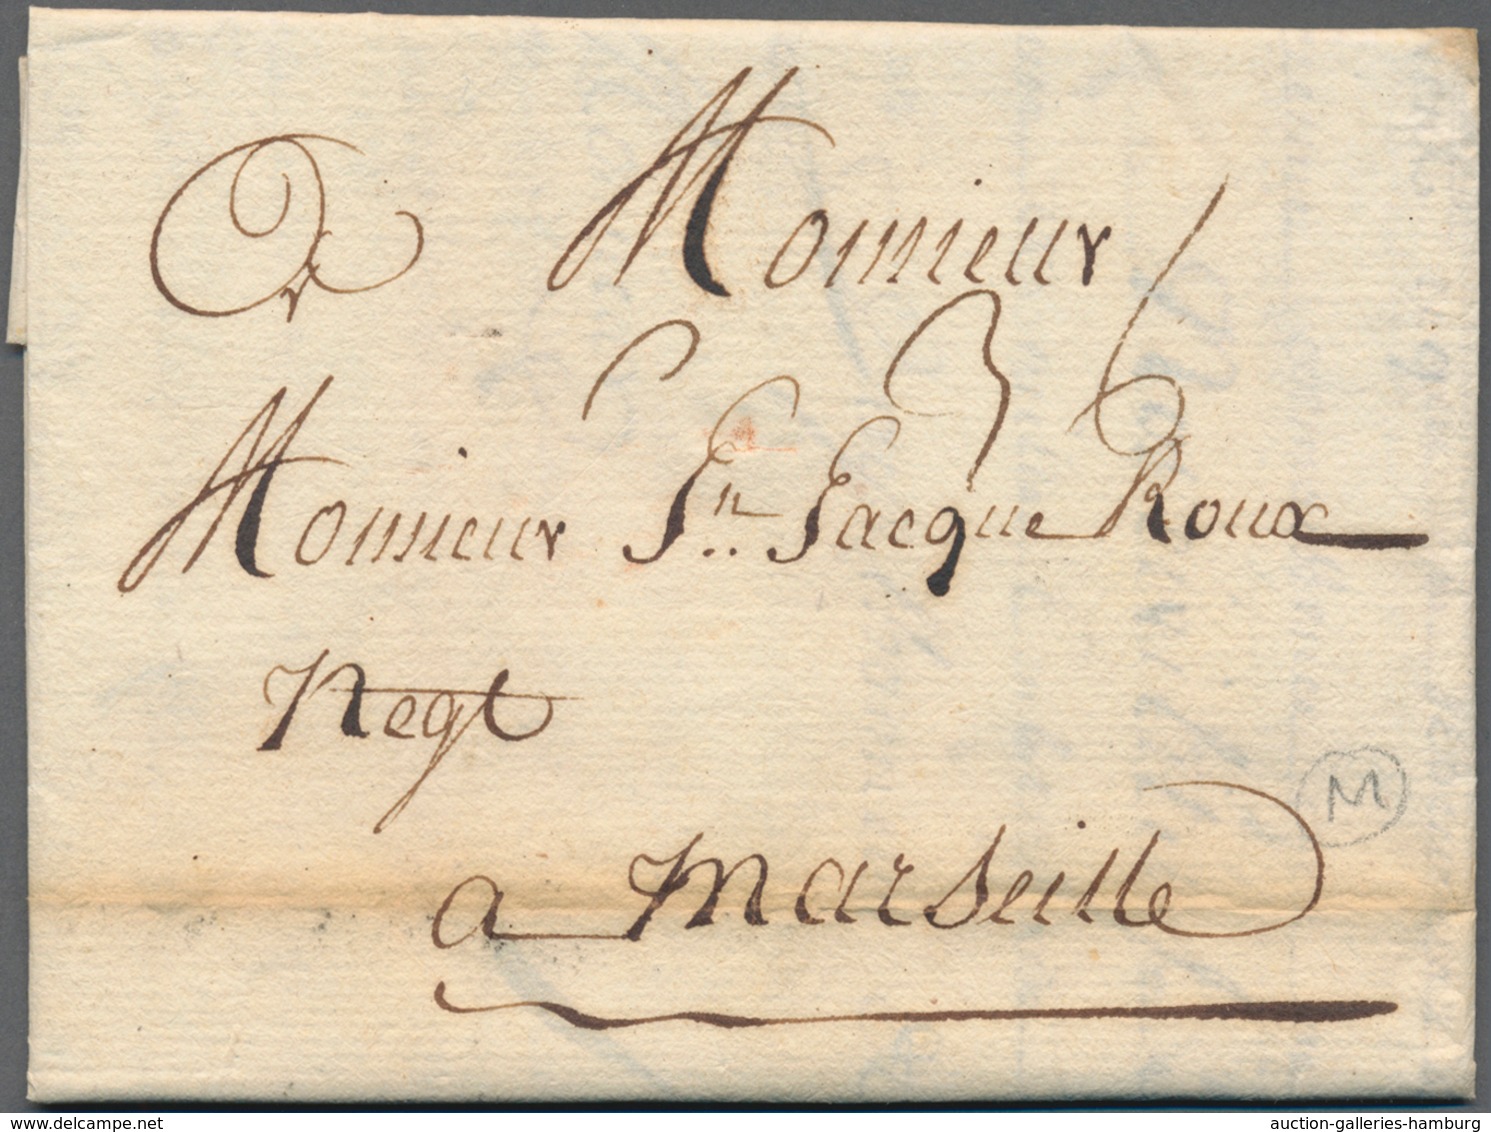 A Monsieur
Monsieur Jn. Jacque Roux
Negt
a Marseille
M
delcampe.net
auction-galleries-hamburg